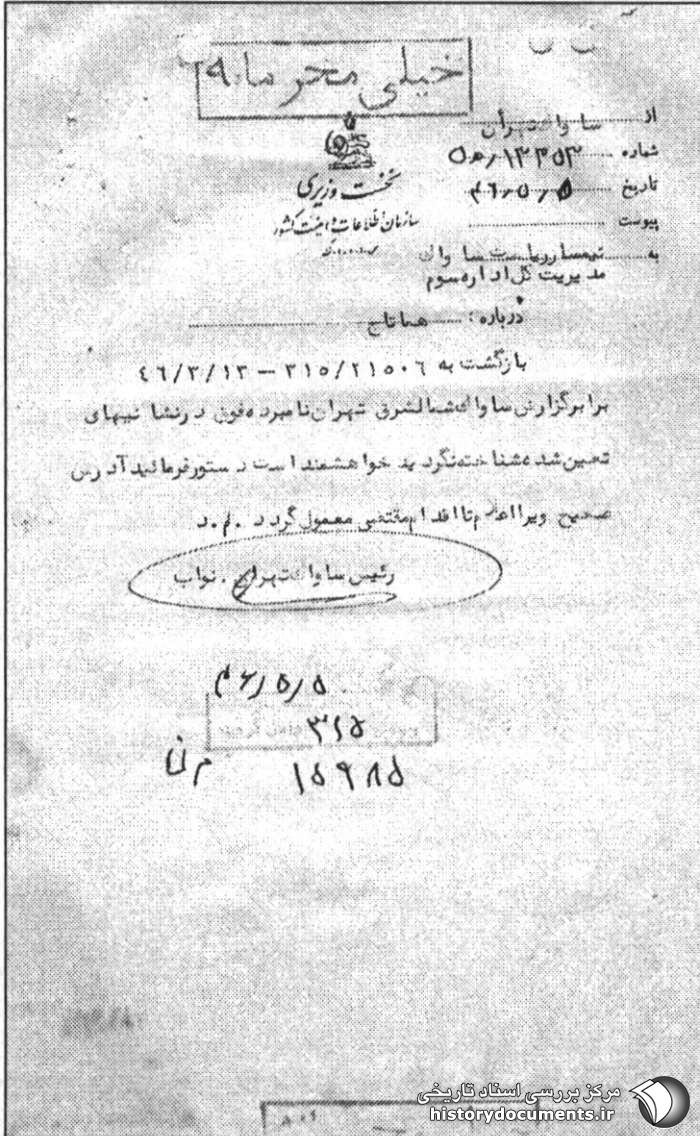 خیلی محرمانه
از ساواک تهران
شماره ۱۳۳۵۳/۵ه
تاریخ ۴۶/۵/۵
پیوست
نخست وزیری
سازمان اطلاعات و امنیت کشور
س.ا.و.ا.ک
به تیمسار ریاست ساواک
مدیریت کل اداره سوم
درباره : هما ناج
بازگشت به ۳۱۵/۲۱۵۰۶ – ۴۶/۳/۱۳
برابر گزارش ساواک شمالشرق تهران نامبرده فوق در نشانیهای
تعیین شده شناخته نگردید خواهشمند است دستور فرمائید آدرس
صحیح ویرا اعلام تا اقدام مقتضی معمول گردد .م.د
رئیس ساواک تهران . نواب
۴۶/۵/۵
۳۱۵
۱۵۹۸۵
مرکز بررسی اسناد تاریخی
historydocuments.ir